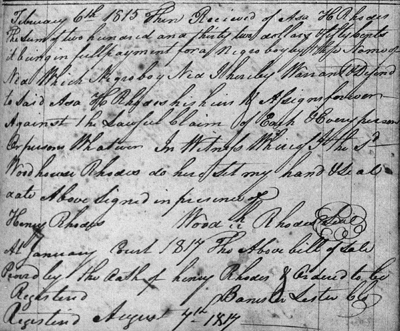 February 6th 1815 Then Recieved of Asa H Rhodes
The sum of two hundred and thirty two dollars
it being in full payment for a Negro boy by the Name of
Ned Which Negro boy Ned I hereby Warrant & Defend
to Said Asa H Rhodes his heirs & Assigns forever
Against the Lawful Claim of Each & Every person
Or persons Whatever In Witness Whereof I the Sd
Woodhouse Rhodes do hereto set my hand & Seal
date Above Signed in presence of
Henry Rhodes Wood h Rhodes Seal
At January Court 1817 The Above bill of Sale
Proved by the Oath of henry Rhodes & Ordered to be
Registered
Registered August 7th 1817